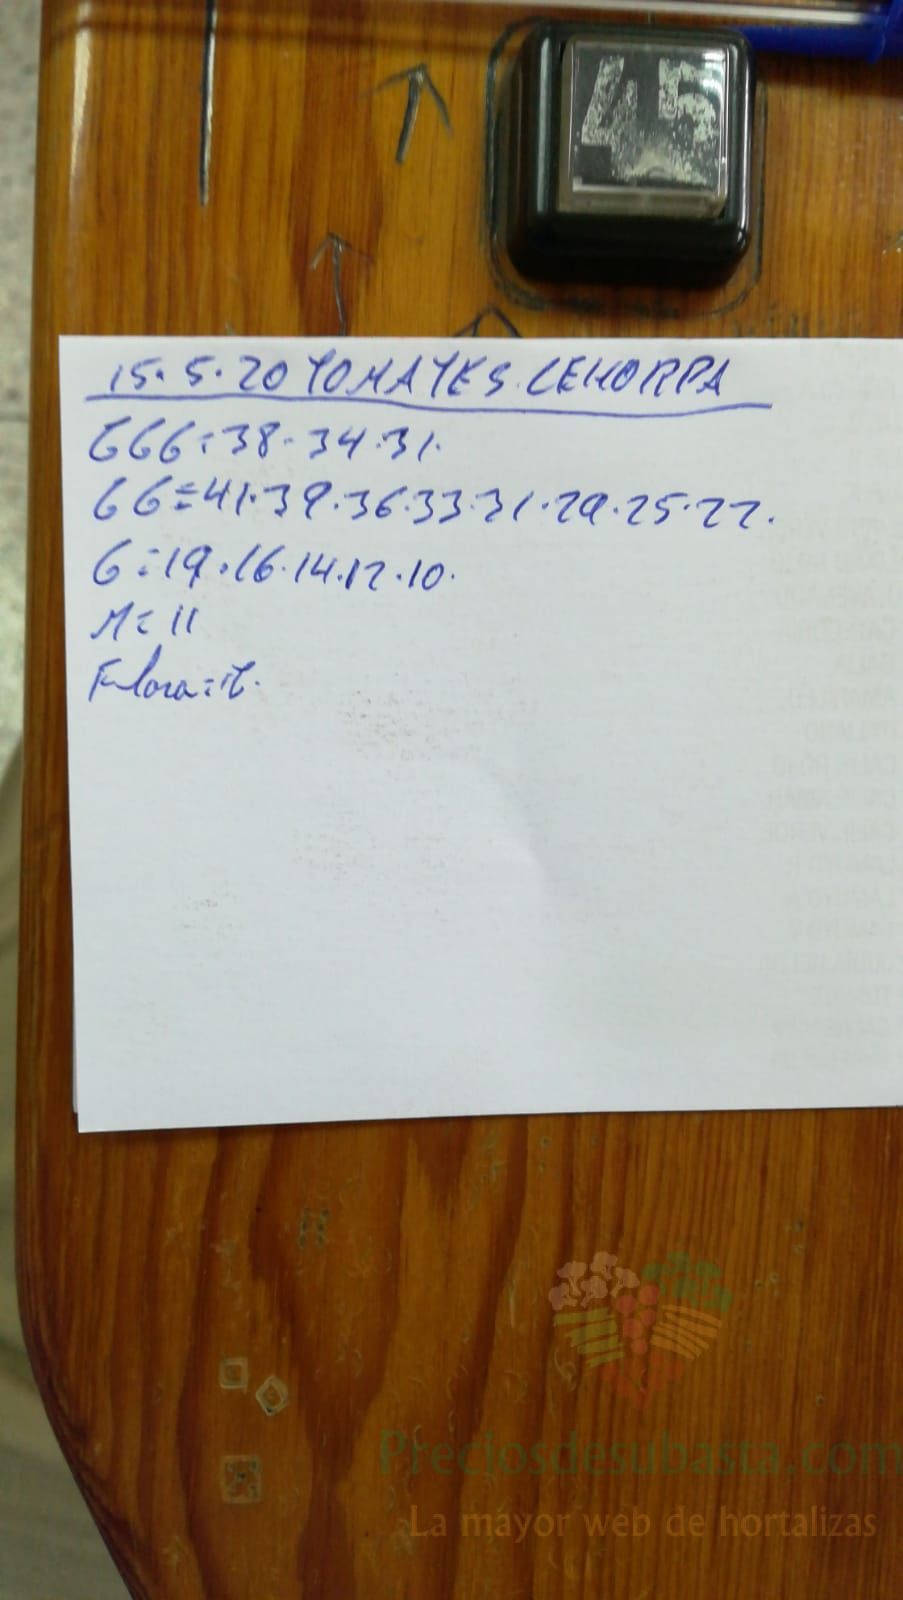 45
15.5.20 TOMATES CEHORPA
GGG=38.34.31.
GG=41.39.36.33.31.29.25.22.
G=19.16.14.12.10.
M=11
Preciosdesubasta.com
La mayor web de hortalizas